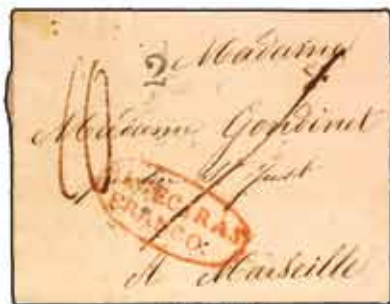 2 Madame
10
Madame Gondinet
St Just
ALGECIRAS
FRANCO.
A Marseille